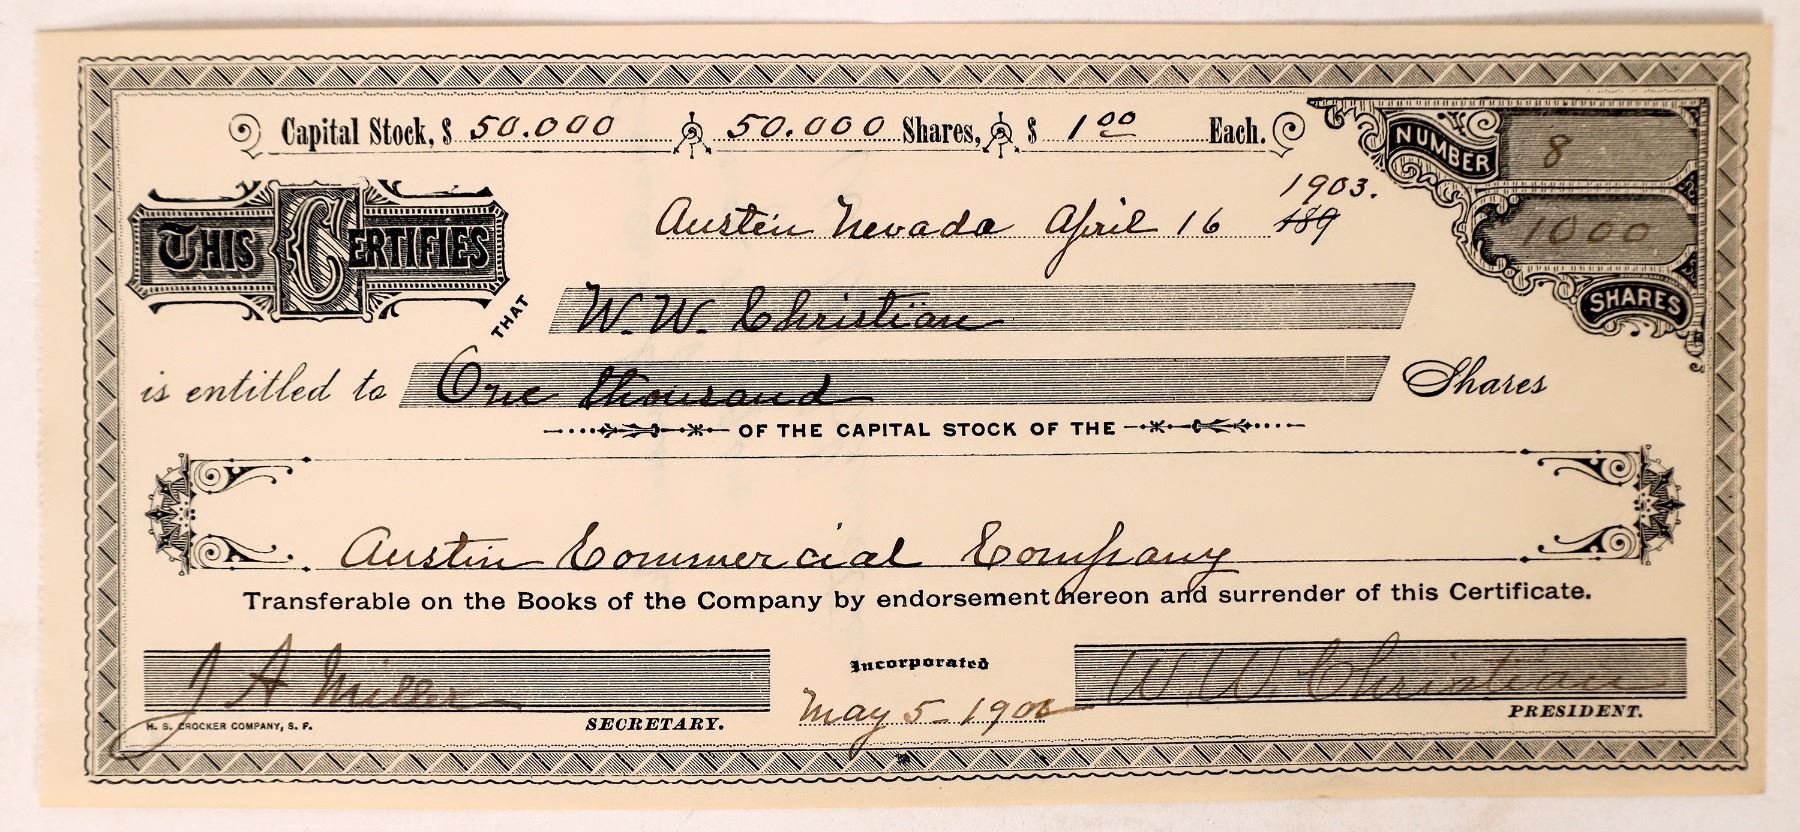 Capital Stock, $ 50.000 50.000 Shares, $ 1 00 Each.
NUMBER 8
Austin Nevada April 16 189 1903.
1000
SHARES
THIS CERTIFIES
THAT W. W. Christian
is entitled to One thousand Shares
OF THE CAPITAL STOCK OF THE
Austin Commercial Company
Transferable on the Books of the Company by endorsement hereon and surrender of this Certificate.
J A Miller
Incorporated
W. W. Christian
May 5-
H. S. CROCKER COMPANY, S. F.
SECRETARY.
PRESIDENT.